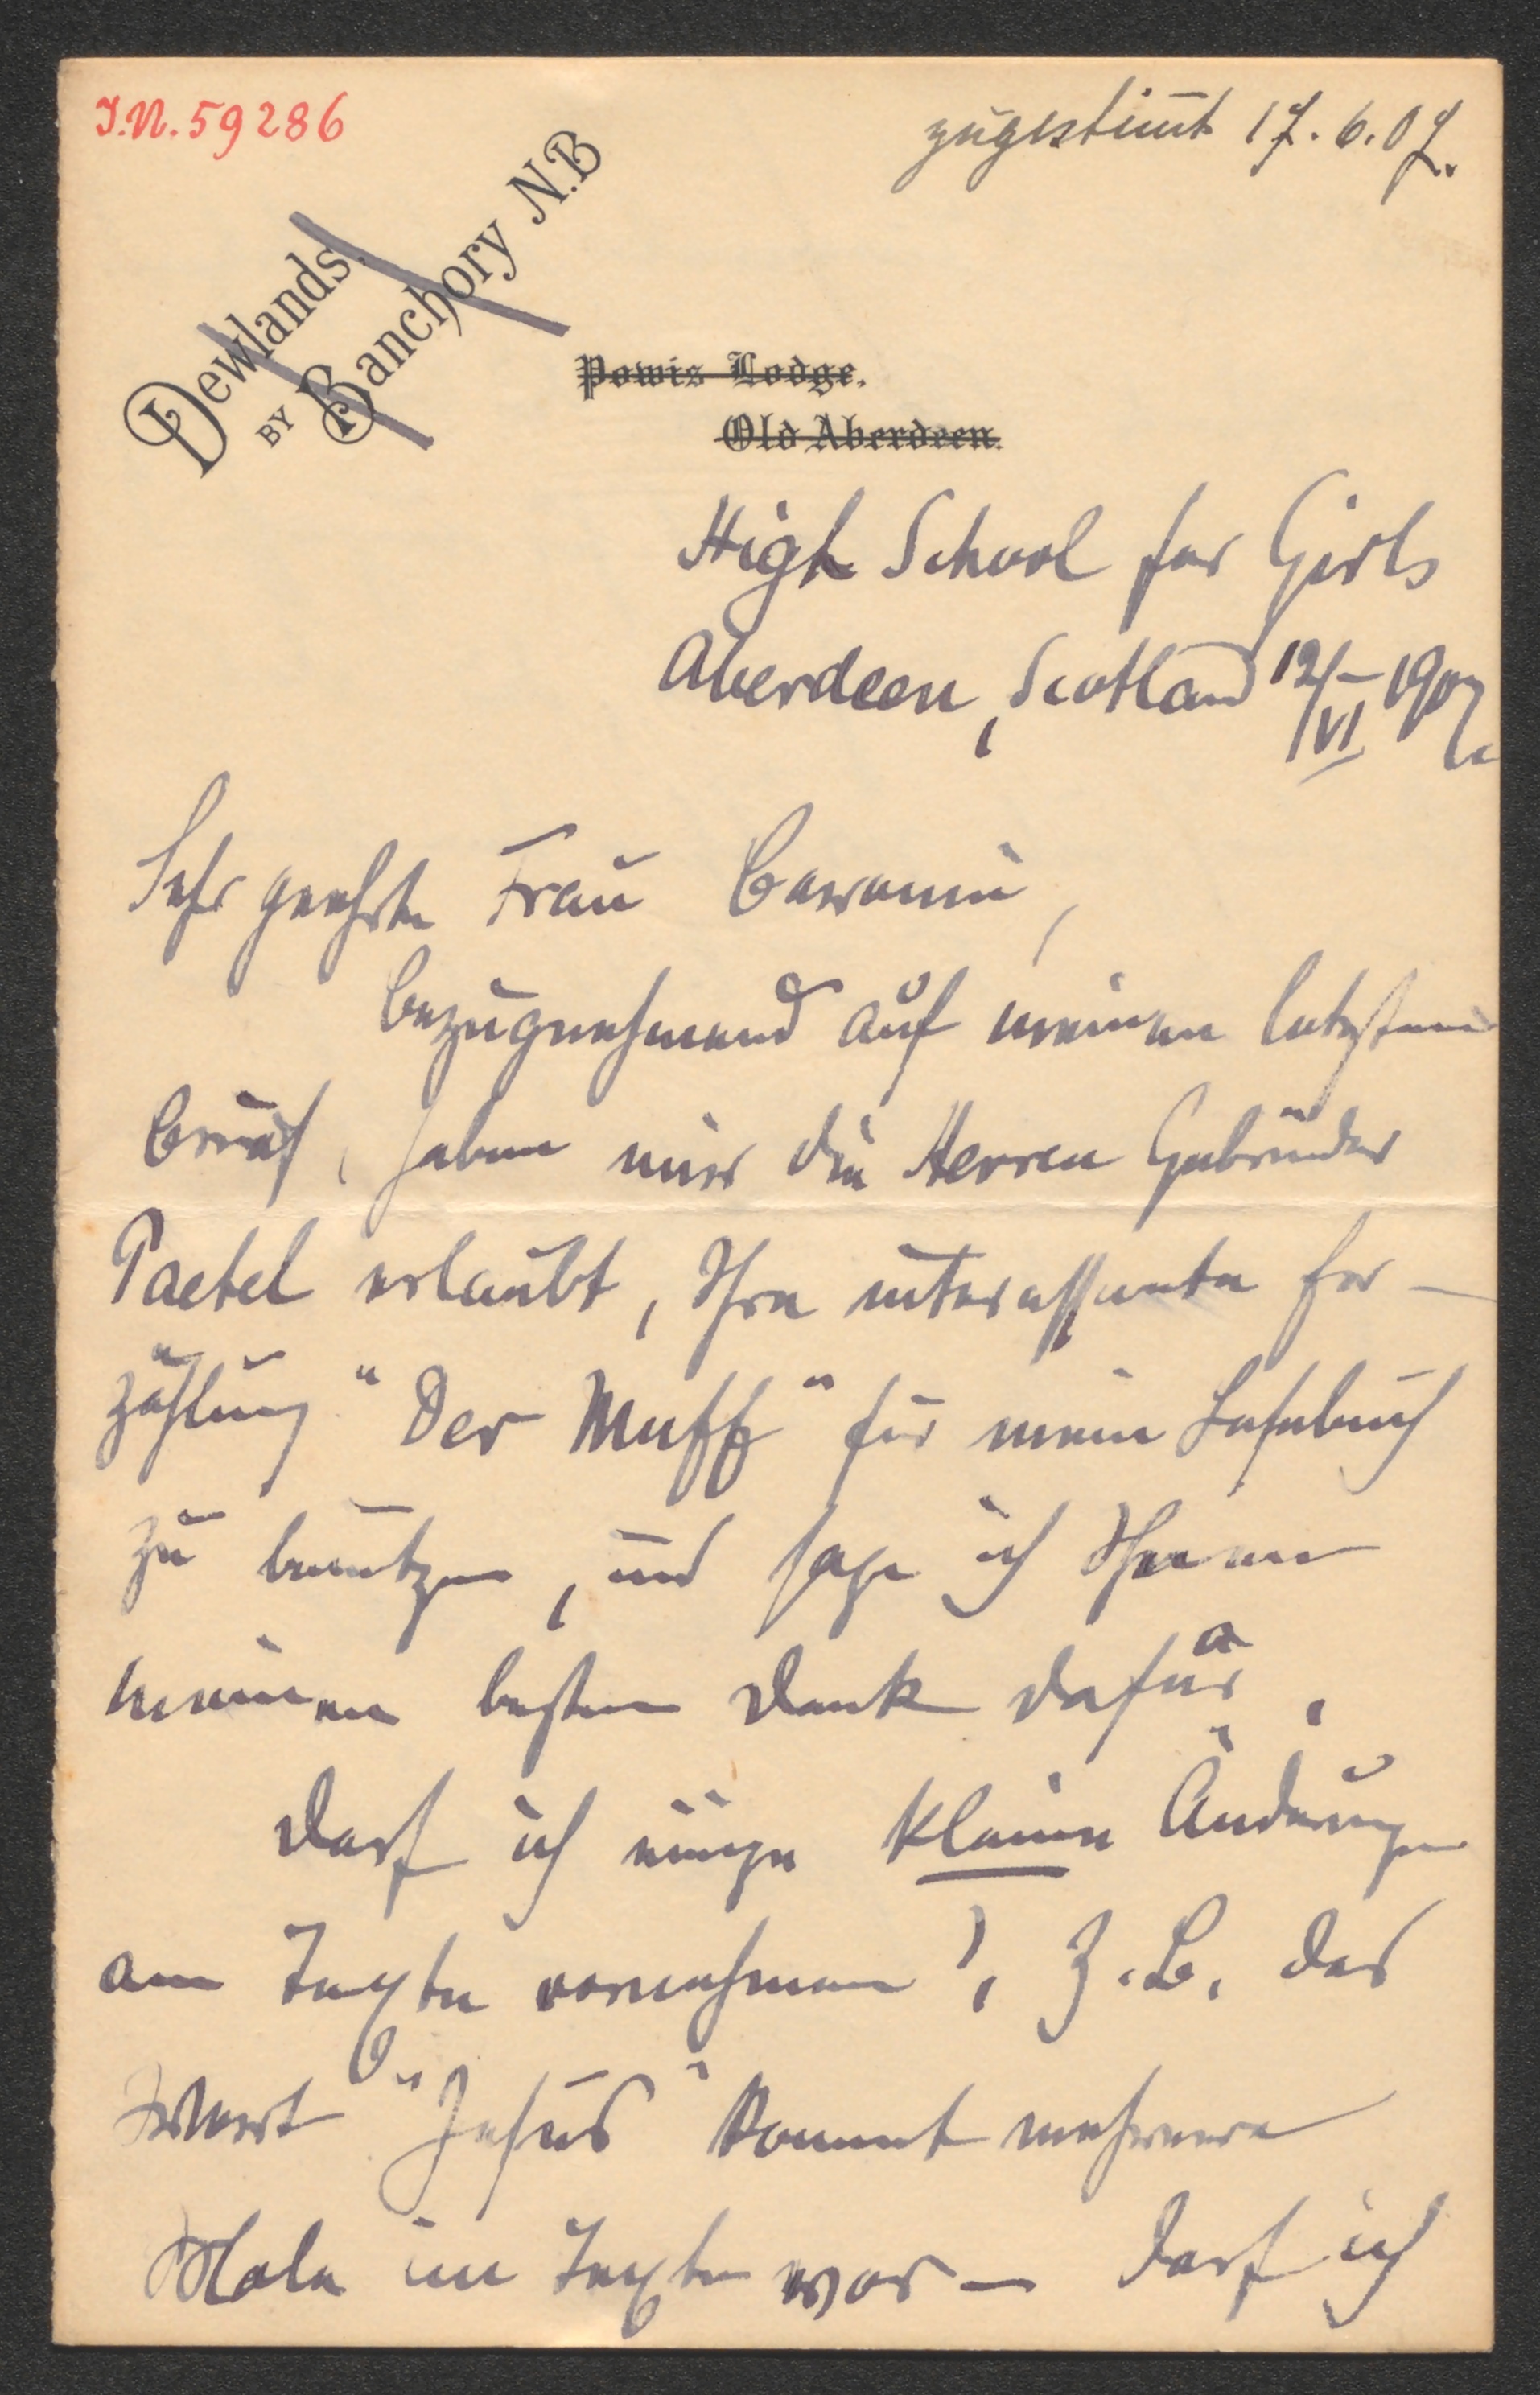 I.N. 59286
zugestimt 17.6.07.
Dewlands,
BY Banchory N.B
Powis Lodge,
Old Aberdeen.
High School for Girls
Aberdeen, Scotland 12/VI–1907.
Sehr geehrte Frau Baronin,
bezugnehmend auf meinen letzten
Brief, haben mir die Herren Gebrüder
Paetel erlaubt, Ihre interessante Er-
zählung "Der Muff" für mein Lesebuch
zu benutzen, und sage ich Ihnen
meinen besten Dank dafür.
Darf ich einige kleine Änderungen
am Texte vornehmen?, Z.B. das
Wort "Jesus" kommt mehrere
Male im Texte vor – darf ich